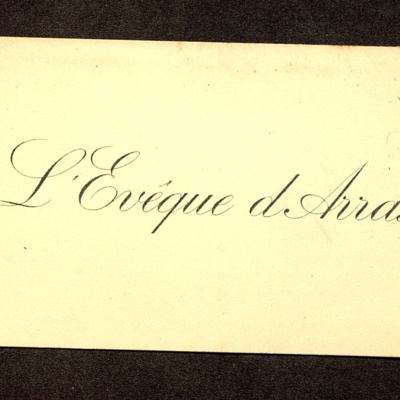 L'Evêque d'Arras